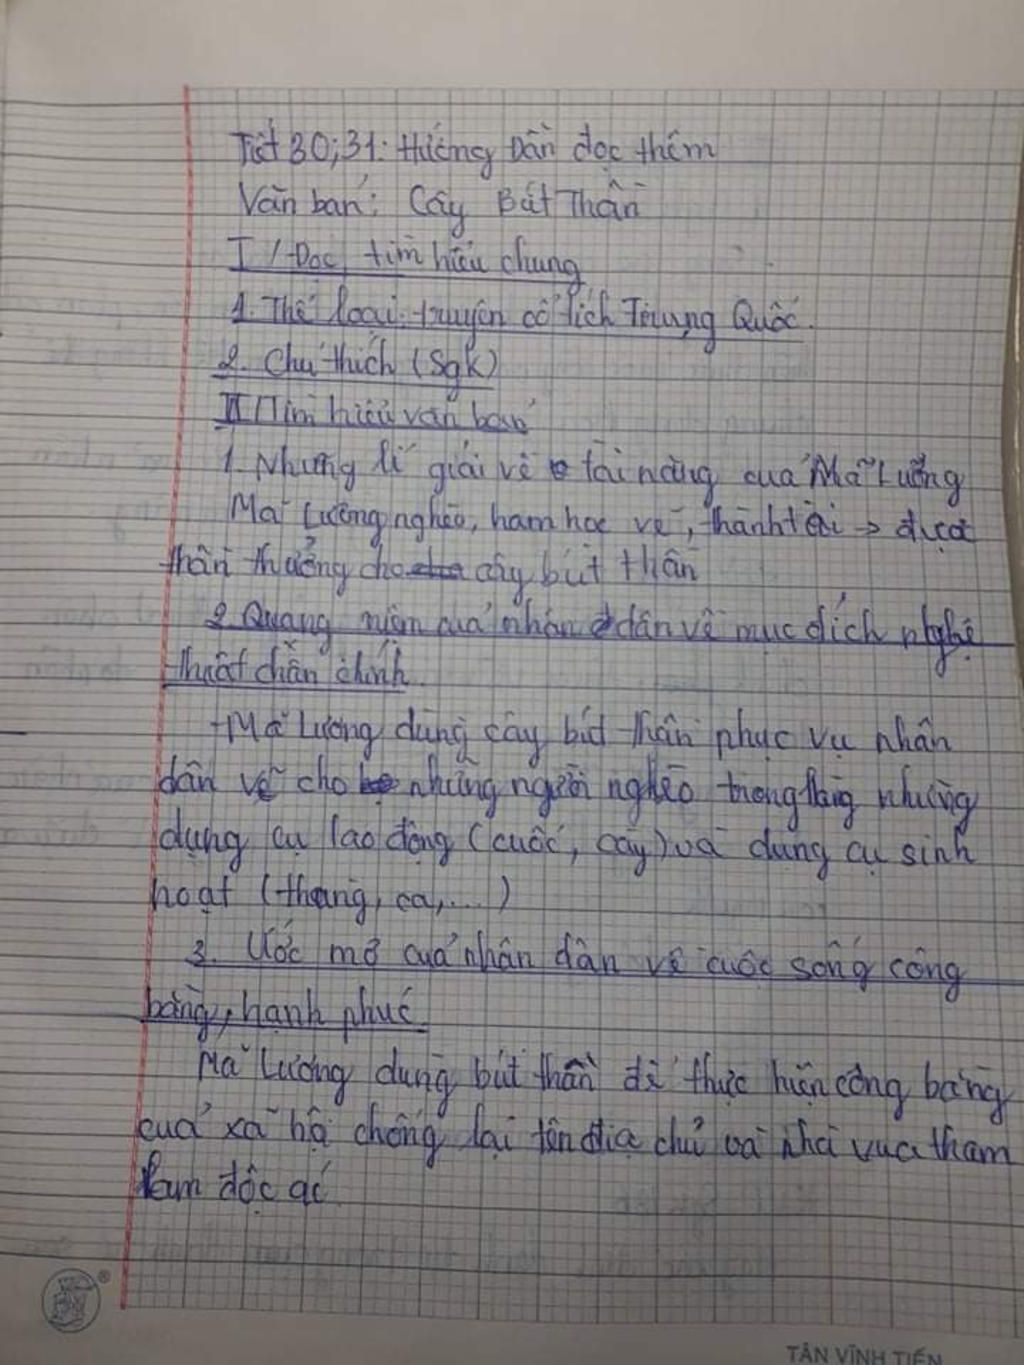 Tiết 30;31: Hướng Dẫn đọc thêm
Văn bản: Cây Bút Thần
I / Đọc, tìm hiểu chung
1. Thể loại: truyện cổ tích Trung Quốc.
2. Chú thích (Sgk)
II Tìm hiểu văn bản
1. Những lí giải về tài năng của Mã Lương
Mã Lương nghèo, ham học vẽ, thành tài → được
thần thưởng cho cây bút thần
2. Quang niệm của nhân dân về mục đích nghệ
thuật chân chính
- Mã Lương dùng cây bút thần phục vụ nhân
dân vẽ cho những người nghèo trong làng những
dụng cụ lao động (cuốc, cày) và dụng cụ sinh
hoạt (thang, ca,...)
3. Ước mơ của nhân dân về cuộc sống công
bằng, hạnh phúc
Mã Lương dùng bút thần để thực hiện công bằng
của xã hội chống lại tên địa chủ và nhà vua tham
lam độc ác
TÂN VĨNH TIẾN